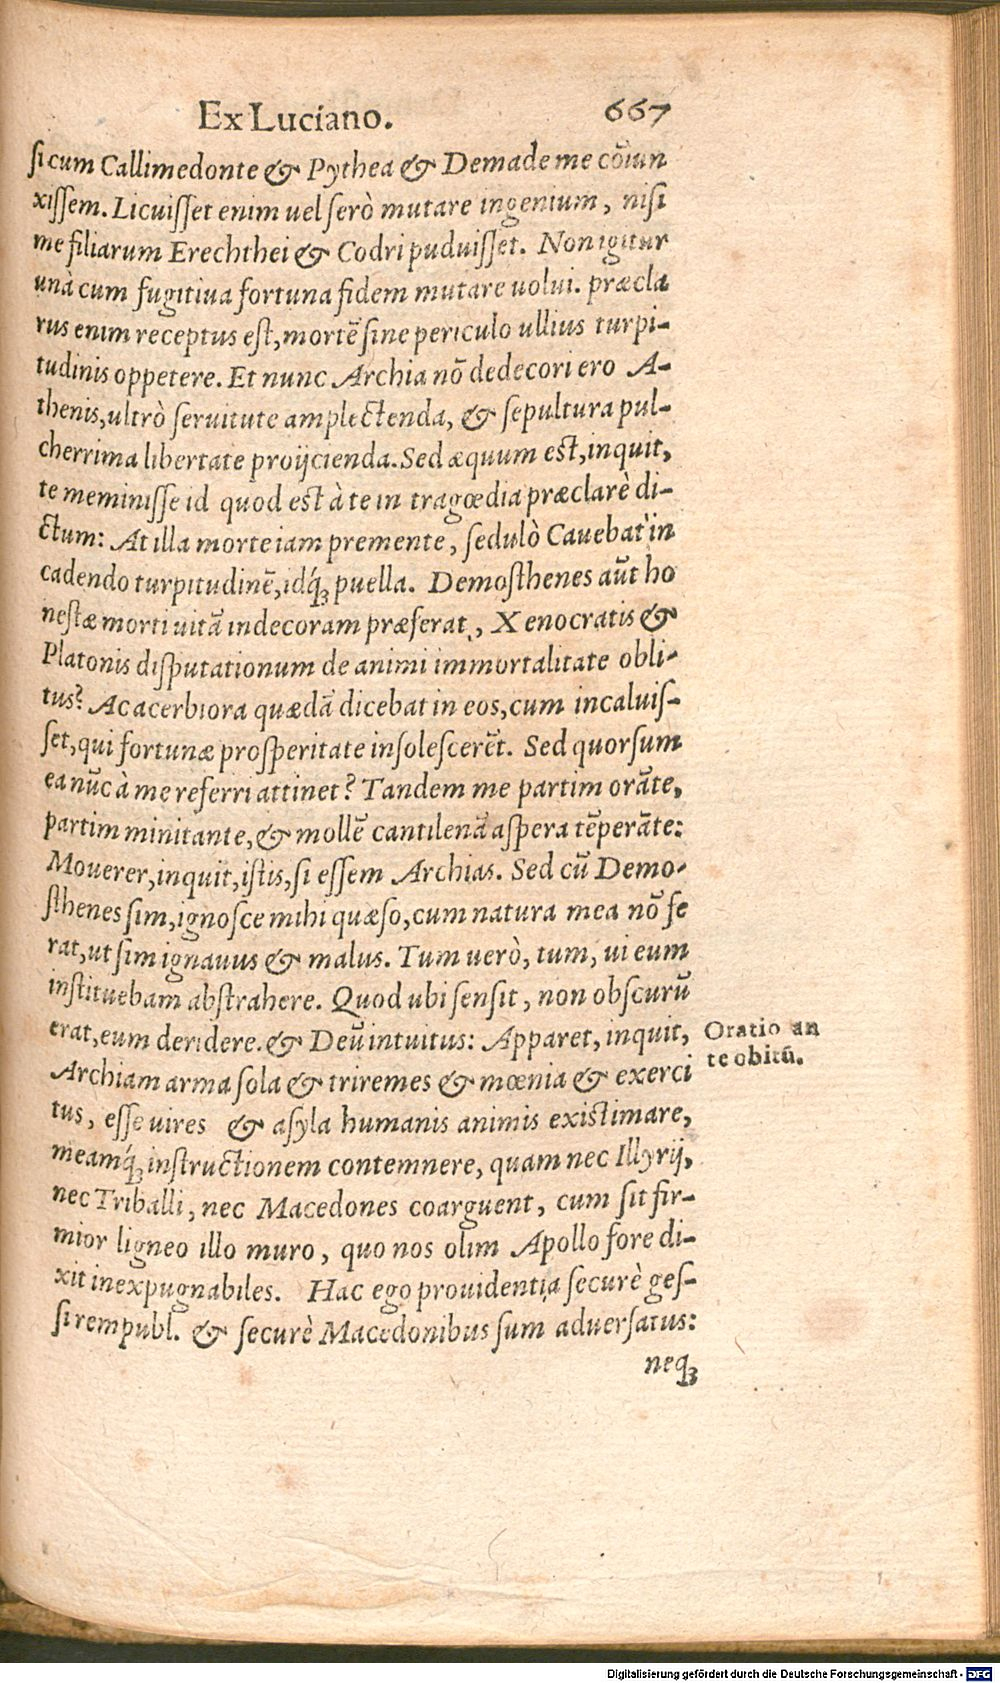 Ex Luciano. 667
si cum Callimedonte & Pythea & Demade me cōiun
xissem. Licuisset enim uel serò mutare ingenium, nisi
me filiarum Erechthei & Codri puduisset. Non igitur
unà cum fugitiua fortuna fidem mutare uolui. præcla
rus enim receptus est, mortē sine periculo ullius turpi-
tudinis oppetere. Et nunc Archia nō dedecori ero A-
thenis, ultrò seruitute amplectenda, & sepultura pul-
cherrima libertate proijcienda. Sed æquum est, inquit,
te meminisse id quod est à te in tragœdia præclarè di-
ctum: At illa morte iam premente, sedulò Cauebat in
cadendo turpitudinē, idq́ꝫ puella. Demosthenes aūt ho
nestæ morti uitā indecoram præferat, Xenocratis &
Platonis disputationum de animi immortalitate obli-
tus? Ac acerbiora quædā dicebat in eos, cum incaluis-
set, qui fortunæ prosperitate insolescerēt. Sed quorsum
ea nūc à me referri attinet? Tandem me partim orāte,
partim minitante, & mollē cantilenā aspera tēperāte:
Mouerer, inquit, istis, si essem Archias. Sed cū Demo-
sthenes sim, ignosce mihi quæso, cum natura mea nō fe
rat, ut sim ignauus & malus. Tum uerò, tum, ui eum
instituebam abstrahere. Quod ubi sensit, non obscurū
erat, eum deridere. & Deū intuitus: Apparet, inquit,
Archiam arma sola & triremes & mœnia & exerci
tus, esse uires & asyla humanis animis existimare,
meamq́ꝫ instructionem contemnere, quam nec Illyrij,
nec Triballi, nec Macedones coarguent, cum sit fir-
mior ligneo illo muro, quo nos olim Apollo fore di-
xit inexpugnabiles. Hac ego prouidentia securè ges-
si rempubl. & securè Macedonibus sum aduersatus:
neqꝫ
Oratio an
te obitū.
Digitalisierung gefördert durch die Deutsche Forschungsgemeinschaft - DFG